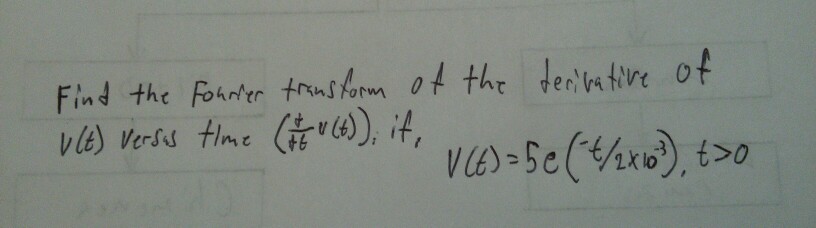 Find the Fourier transform of the derivative of
v(t) versus time (d/dt v(t)); if,
V(t) = 5e(-t/2x10^-3), t>0